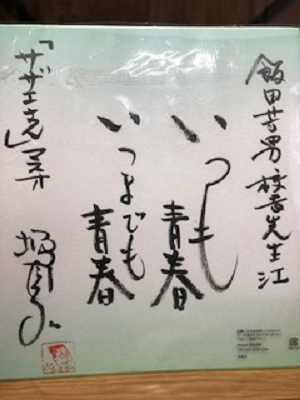 飯田芳男校長先生江
いつも
青春
いつまでも
青春
「サザエさん」マスオ